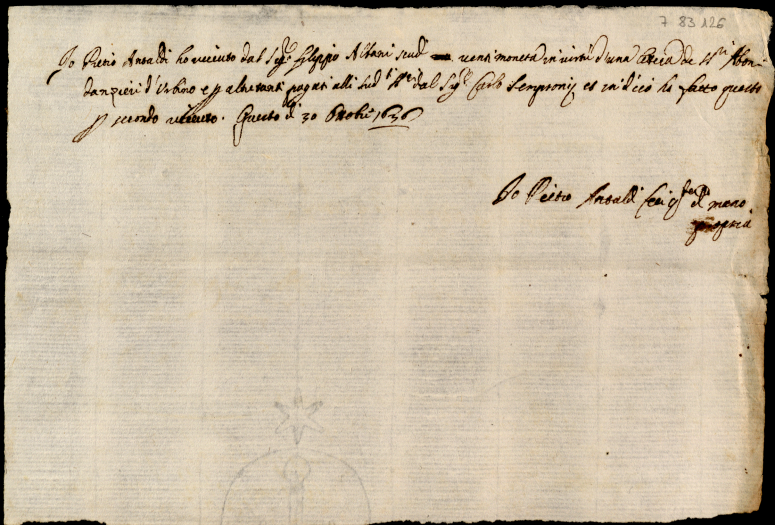 7 83 126
Io Pietro Antaldi ho riceuto dal Sig.r Filippo Albani scudi venti moneta in virtù d'una de SS.ri Abon
danzieri d'Urbino e p altretanti pagati alli sud.i SS.ri dal Sig.r Carlo Sempronij et in di ciò ho fatto questo
p secondo riceuto. Questo dì 30 Ottobre 1636
Io Pietro Antaldi mano
propria